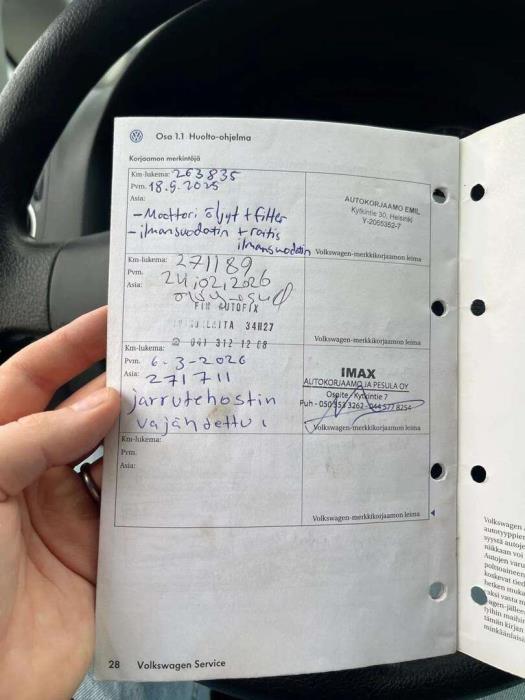 Osa 1.1 Huolto-ohjelma
Korjaamon merkintöjä
Km-lukema: 263835
Pvm. 18.9.2025
Asia:
- Moottori öljyt + filtter
- ilmansuodatin + raitis
ilmansuodatin
AUTOKORJAAMO EMIL
Kytkintie 30, Helsinki
Y-2065352-7
Volkswagen-merkkikorjaamon leima
Km-lukema: 271189
Pvm. 24.02.2026
Asia:
FIN AUTOFIX
34H27
☎ 041 312 12 68
Volkswagen-merkkikorjaamon leima
Km-lukema:
Pvm. 6-3-2026
Asia: 271711
jarrutehostin
vajahdettu
IMAX
AUTOKORJAAMO JA PESULA OY
Osoite Kytkintie 7
Puh - 050 553 3262 - 044 577 8254
Volkswagen-merkkikorjaamon leima
Km-lukema:
Pvm.
Asia:
Volkswagen-merkkikorjaamon leima
28 Volkswagen Service
Volkswagen